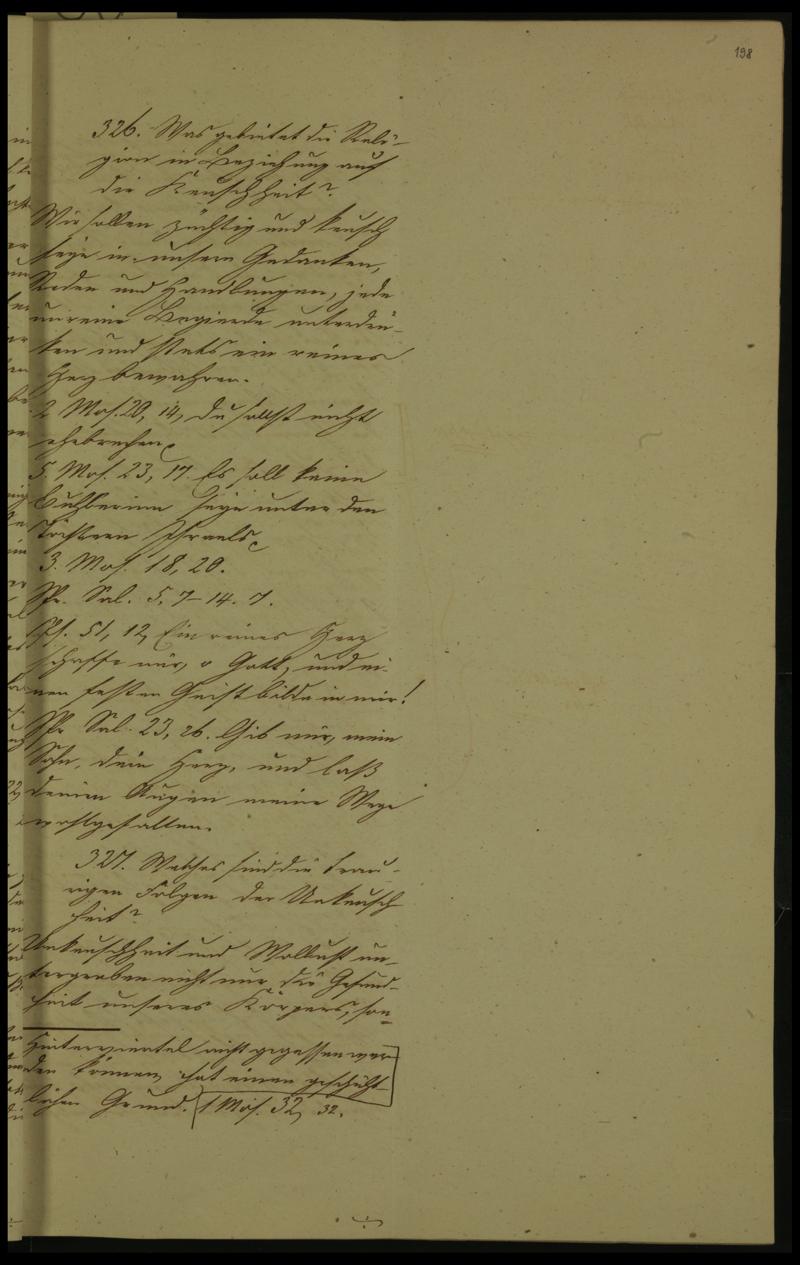 198
326. Was gebietet die Reli-
gion in Beziehung auf
die Keuschheit?
Wir sollen züchtig und keusch
seyn in unsern Gedanken,
Reden und Handlungen, jede
unreine Begierde unterdrü-
ken und stets ein reines
Herz bewahren.
2 Mos. 20, 14, du sollst nicht
ehebrechen.
5. Mos. 23, 17. Es soll keine
Buhlerinn seyn unter den
Töchtern Israels.
3. Mos. 18, 20.
Spr. Sal. 5, 7-14. 7.
Ps. 51, 12, Ein reines Herz
schaffe mir, o Gott, und ei-
nen festen Geist bilde in mir!
Spr Sal. 23, 26. Gib mir, mein
Sohn, dein Herz, und laß
deinen Augen meine Wege
wohlgefallen.
327. Welches sind die trau-
rigen Folgen der Unkeusch
heit?
Unkeuschheit und Wollust un-
tergraben nicht nur die Gesund-
heit unseres Körpers, son-
Hinterviertel nicht gegessen wer
den können, hat einen geschicht
lichen Grund. 1 Mos. 32, 32.